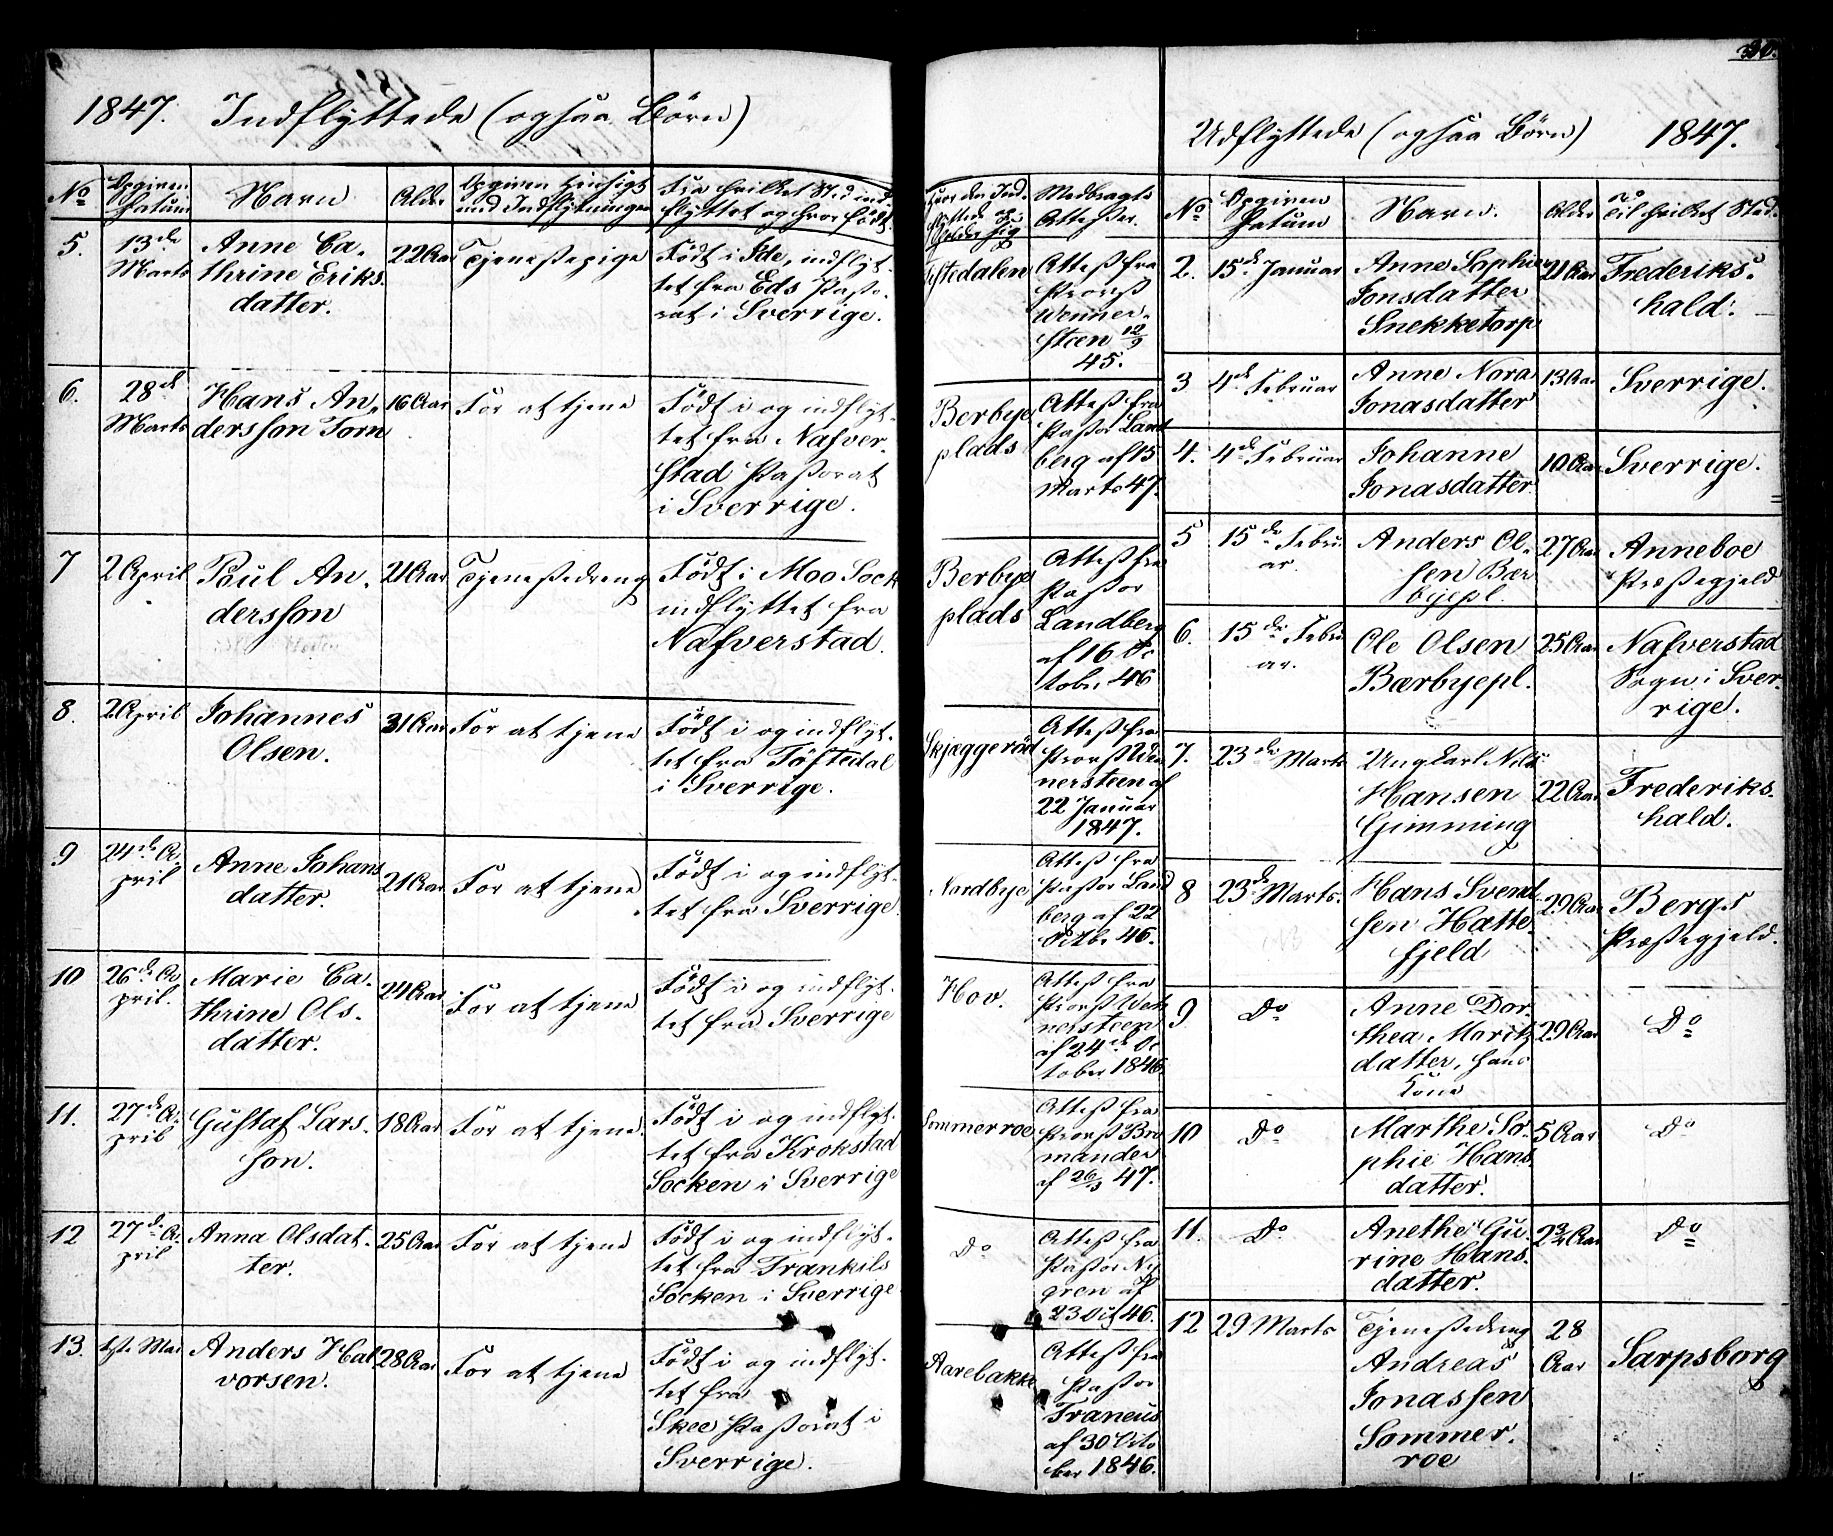 1847. Indflyttede (ogsaa Børn)
No
Opgiven
Datum
Navn
Alder
Opgiven Hensigt
med Indflytningen
Fra hvilket Sted ind-
flyttet og hvor født.
5.
13de
Marts
Anne Ca-
thrine Eriks-
datter.
22 Aar
Tjenestepige
Født i Ide, indflyt-
tet fra Eds Pasto-
rat i Sverrige.
Attest fra
Provst
Wenner-
steen 12/9
45.
6.
28de
Marts
Hans An-
dersson Torn
16 Aar
For at tjene
Født i og indflyt-
tet fra Nafver-
stad Pastorat
i Sverrige.
Berbye
plads
Attest fra
Pastor Land
berg af 15
Marts 47.
7
2 April
Poul An-
dersson
21 Aar
Tjenestedreng
Født i Moo Sock
indflyttet fra
Nafverstad.
Berbye
plads
Attest fra
Pastor
Landberg
af 16 Oc
tober 46
8.
2 April
Johannes
Olsen.
31 Aar
For at tjene
Født i og indflyt-
tet fra Töftedal
i Sverrige.
Skjæggeröd
Attest fra
Provst Wen
nersteen af
22 Januar
1847.
9
24de A-
pril
Anne Johans
datter.
21 Aar
For at tjene
Født i og indflyt-
tet fra Sverrige.
Nordbye
Attest fra
Pastor Land
berg af 22
Octbr 46.
10
26de A-
pril.
Marie Ca-
thrine Ols-
datter.
24 Aar
For at tjene
Født i og indflyt-
tet fra Sverrige
Hov.
Attest fra
Provst Wen
nersteen
af 24de Oc
tober 1846.
11.
27de A-
pril
Gustaf Lars-
son.
18 Aar
For at tjene.
Født i og indflyt-
tet fra Krokstad
Socken i Sverrige
Sommerroe
Attest fra
Provst Bro
mander
af 26/3 47.
12
27de A-
pril
Anna Olsdat-
ter.
25 Aar
For at tjene
Født i og indflyt-
tet fra Frankils
Socken i Sverrige
Do
Attest fra
Pastor Ny
gren af
23 Oct 46.
13.
1ste Mai
Anders Hal
vorsen.
28 Aar
For at tjene
Født i og indflyt-
tet fra
Skee Pastorat i
Sverrige.
Aarebakke
Attest fra
Pastor
Franeus
af 30 Octo
ber 1846.
Udflyttede (ogsaa Børn) 1847.
No
Opgiven
Datum
Navn.
Alder
Til hvilket Sted.
2.
15de Januar
Anne Sophie
Jonsdatter
Snekketorp
21 Aar
Frederiks-
hald.
3
4de Februar
Anne Nora
Jonasdatter
13 Aar
Sverrige.
4.
4de Februar
Johanne
Jonasdatter
10 Aar
Sverrige.
5
15de Febru
ar.
Anders Ol-
sen Bær
byepl.
27 Aar
Anneboe
Præstegjeld
6.
15de Febru
ar.
Ole Olsen
Bærbyepl.
25 Aar
Nafverstad
Sogn i Sver-
rige.
7.
23de Marts
Ungkarl Nils
Hansen
Gjimming
22 Aar
Frederiks-
hald.
8
23de Marts.
Hans Svend
sen Hatte-
fjeld
29 Aar
Bergs
Præstegjeld.
9
Do
Anne Dor-
thea Moritz
datter, hans
Kone
29 Aar
Do
10
Do
Marthe So-
phie Hans
datter.
5 Aar
Do
11.
Do
Anethe Gu-
rine Hans-
datter.
2 3/4 Aar
Do
12
29 Marts
Tjenestedreng
Andreas
Jonassen
Sommer-
roe
28
Aar
Sarpsborg